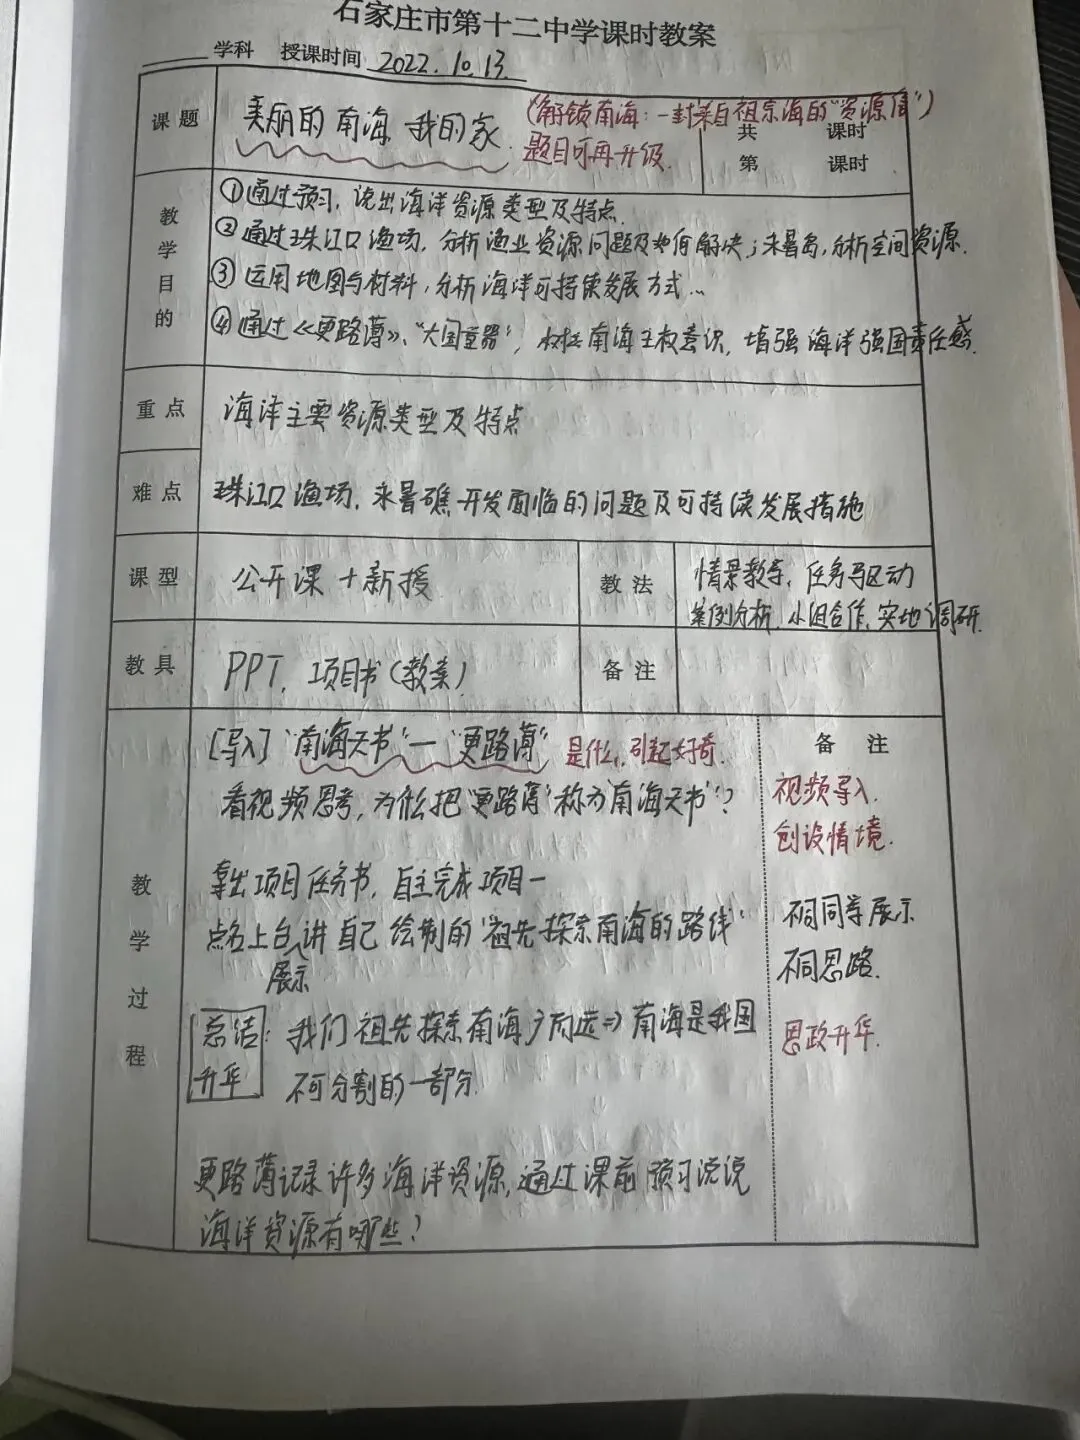 石家庄市第十二中学课时教案
学科 授课时间 2022.10.13
课题 美丽的南海 我的家 (解锁南海:一封来自祖宗海的“资源信”)
题目可再升级.
共 课时
第 课时
教学目的
①通过预习,说出海洋资源类型及特点.
②通过珠江口渔场,分析渔业资源问题及如何解决;永暑岛,分析空间资源.
③运用地图与材料,分析海洋可持续发展方式...
④通过《更路薄》、“大国重器”,树立南海主权意识,增强海洋强国责任感.
重点 海洋主要资源类型及特点
难点 珠江口渔场、永暑礁开发面临的问题及可持续发展措施
课型 公开课+新授 教法 情景教学、任务驱动
案例分析、小组合作、实地调研.
教具 PPT、项目书(教案) 备注
教学过程
[导入]“南海天书”—“更路薄” 是什么,引起好奇.
看视频思考,为什么把“更路薄”称为“南海天书”?
拿出项目任务书,自主完成项目一
点名上台讲自己绘制的“祖先探索南海的路线”
展示
总结: 我们祖先探索南海 => 南海是我国
升华 不可分割的一部分.
更路薄记录许多海洋资源,通过课前预习说说
海洋资源有哪些?
备注
视频导入.
创设情境.
不同同学展示
不同思路.
思政升华.